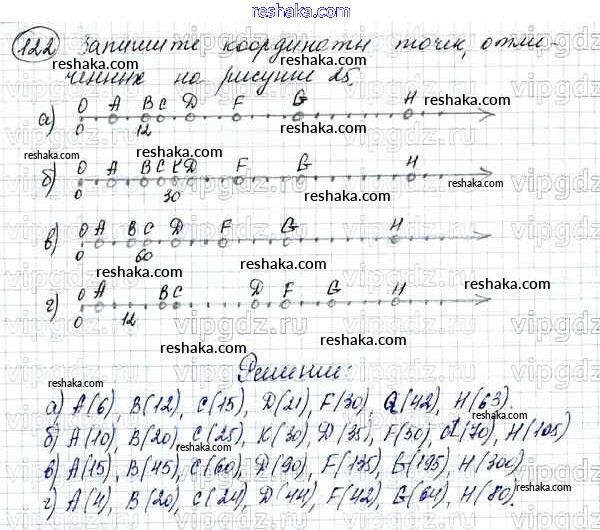 reshaka.com
122 Запишите координаты точек, отме-
ченных на рисунке 25.
reshaka.com
а) O A B C D F G H
0 12
reshaka.com
б) O A B C K D F G H
0 30
reshaka.com
в) O A B C D F G H
0 60
reshaka.com
г) O A B C D F G H
0 12
reshaka.com
Решение:
а) A(6), B(12), C(15), D(21), F(30), G(42), H(63).
б) A(10), B(20), C(25), K(30), D(35), F(50), G(70), H(105)
в) A(15), B(45), C(60), D(90), F(135), G(195), H(300).
г) A(4), B(20), C(24), D(44), F(42), G(64), H(80).
vipgdz.ru